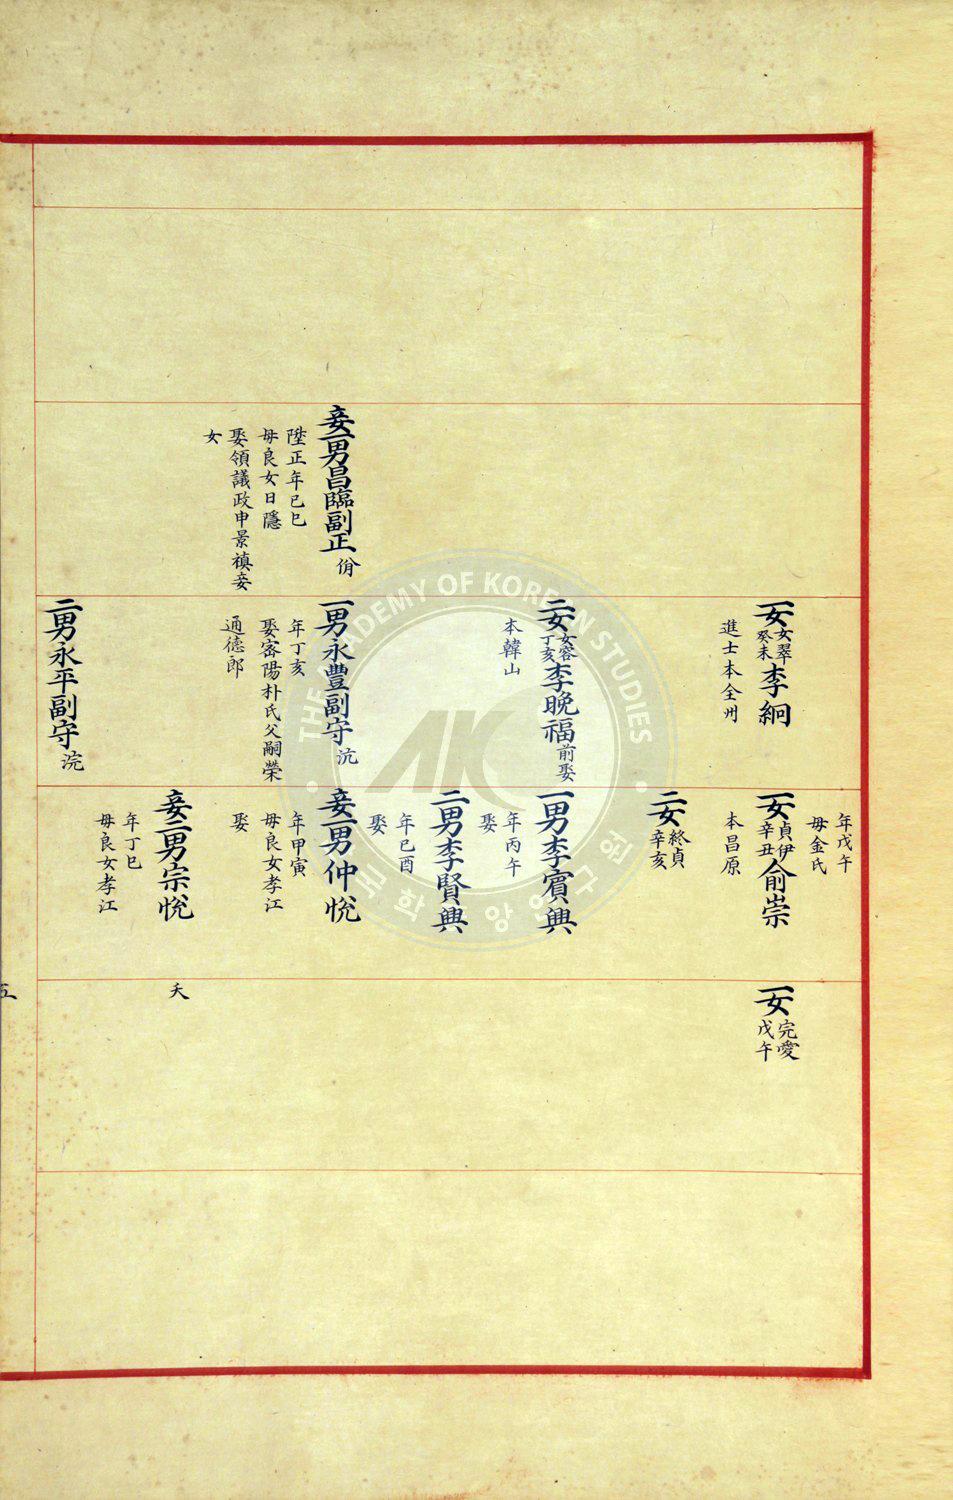 妾一男昌臨副正佾
陞正年己巳
母良女日隱
娶領議政申景禛妾
女
一女女翠癸未李絅
進士本全州
二女女容丁亥李晚福前娶
本韓山
一男永豐副守沆
年丁亥
娶密陽朴氏父嗣榮
通德郎
二男永平副守浣
年戊午
母金氏
一女貞伊辛丑俞崇
本昌原
二女終貞辛亥
一男李賓興
年丙午
娶
二男李賢興
年己酉
娶
妾一男仲悅
年甲寅
母良女孝江
娶
妾二男宗悅
年丁巳
母良女孝江
一女完愛戊午
夭
五
THE ACADEMY OF KOREAN STUDIES
한국학중앙연구원
AKS